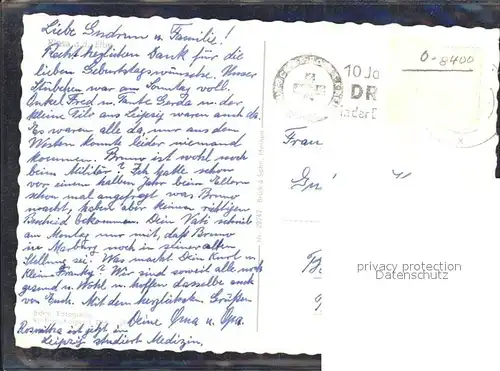 Liebe Gudrun u. Familie!
Recht herzlichen Dank für die
lieben Geburtstagswünsche. Unser
Stübchen war am Sonntag voll.
Onkel Fred u. Tante Gerda u. der
kleine Tilo aus Leipzig waren auch da.
Es waren alle da, nur aus dem
Westen konnte leider niemand
kommen. Bruno ist wohl noch
beim Militär? Ich hatte schon
vor einem halben Jahr beim Eltern
schon mal angefragt was Bruno
macht, haben aber keinen richtigen
Bescheid bekommen. Dein Vati schrieb
am Montag nur mit, daß Bruno
in Marburg noch in seiner alten
Stellung sei. Was macht Dein Kurt u.
klein Franky? Wir sind soweit alle noch
gesund u. Wohl u. hoffen dasselbe auch
von Euch. Mit den herzlichsten Grüßen
Deine Oma u. Opa.
Rosmitha ist jetzt in
Leipzig studiert Medizin.
O-8400
10 Ja
DR
in der D
Frau
Gu
privacy protection
Datenschutz